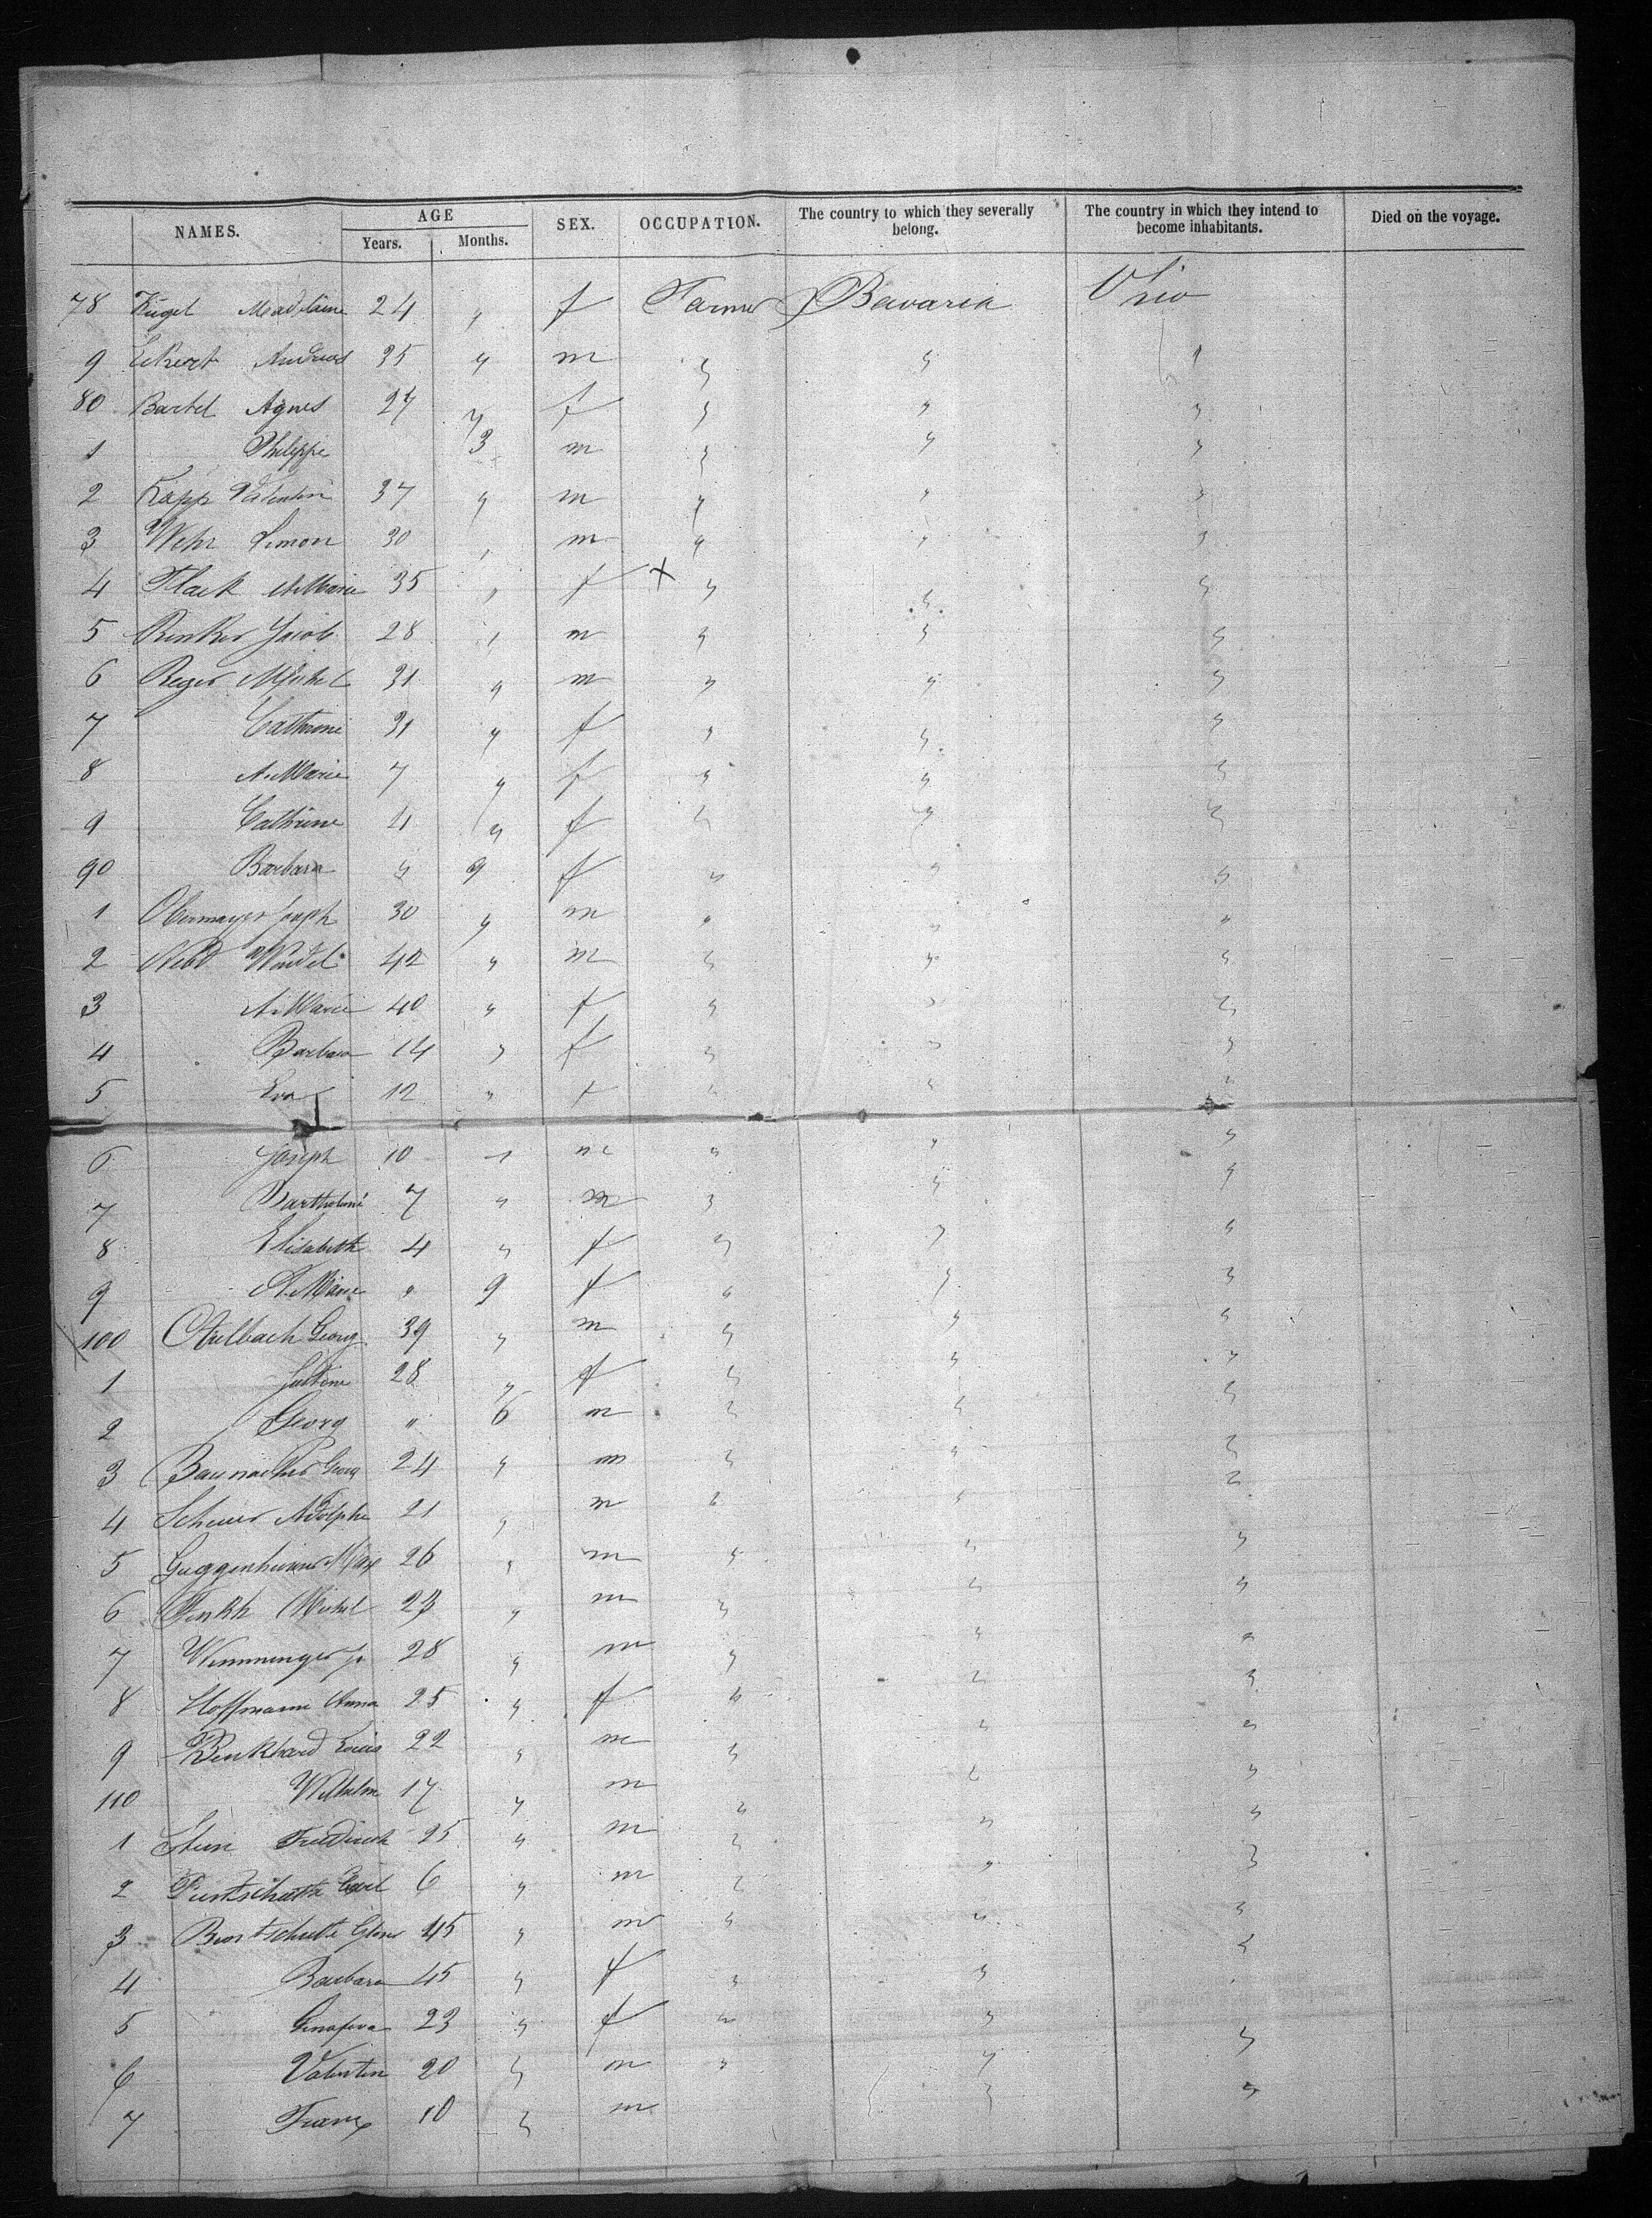 NAMES. AGE SEX. OCCUPATION. The country to which they severally belong. The country in which they intend to become inhabitants. Died on the voyage.
Years. Months.
78 Kugel Madelaine 24 " f Farmer Bavaria Ohio
9 Eckert Andreas 35 " m " " "
80 Bartel Agnes 27 " f " " "
1 Philippe 3 m " " "
2 Kapp Valentin 37 " m " " "
3 Wehr Simon 30 " m " " "
4 Flack A. Marie 35 " f x " " "
5 Renker Jacob 28 " m " " "
6 Reger Michel 31 " m " " "
7 Cathrine 31 " f " " "
8 A. Marie 7 " f " " "
9 Cathrine 4 " f " " "
90 Barbara " 9 f " " "
1 Obermayer Joseph 30 " m " " "
2 Wendel 42 " m " " "
3 A. Marie 40 " f " " "
4 Barbara 14 " f " " "
5 Eva 12 " f " " "
6 Joseph 10 " m " " "
7 Bartholomé 7 " m " " "
8 Elisabeth 4 " f " " "
9 A. Marie " 9 f " " "
100 Georg 39 " m " " "
1 28 " f " " "
2 Georg " 6 m " " "
3 Georg 24 " m " " "
4 Scheuer Adolphe 21 " m " " "
5 Guggenheimer Max 26 " m " " "
6 Michel 23 " m " " "
7 Wenninger Jo 28 " m " " "
8 Hoffmann Anna 25 " f " " "
9 Louis 22 " m " " "
110 Wilhelm 17 " m " " "
1 Friedrich 25 " m " " "
2 Carl 6 " m " " "
3 45 " m " " "
4 Barbara 45 " f " " "
5 Genofeva 23 " f " " "
6 Valentin 20 " m " " "
7 Franz 10 " m " "